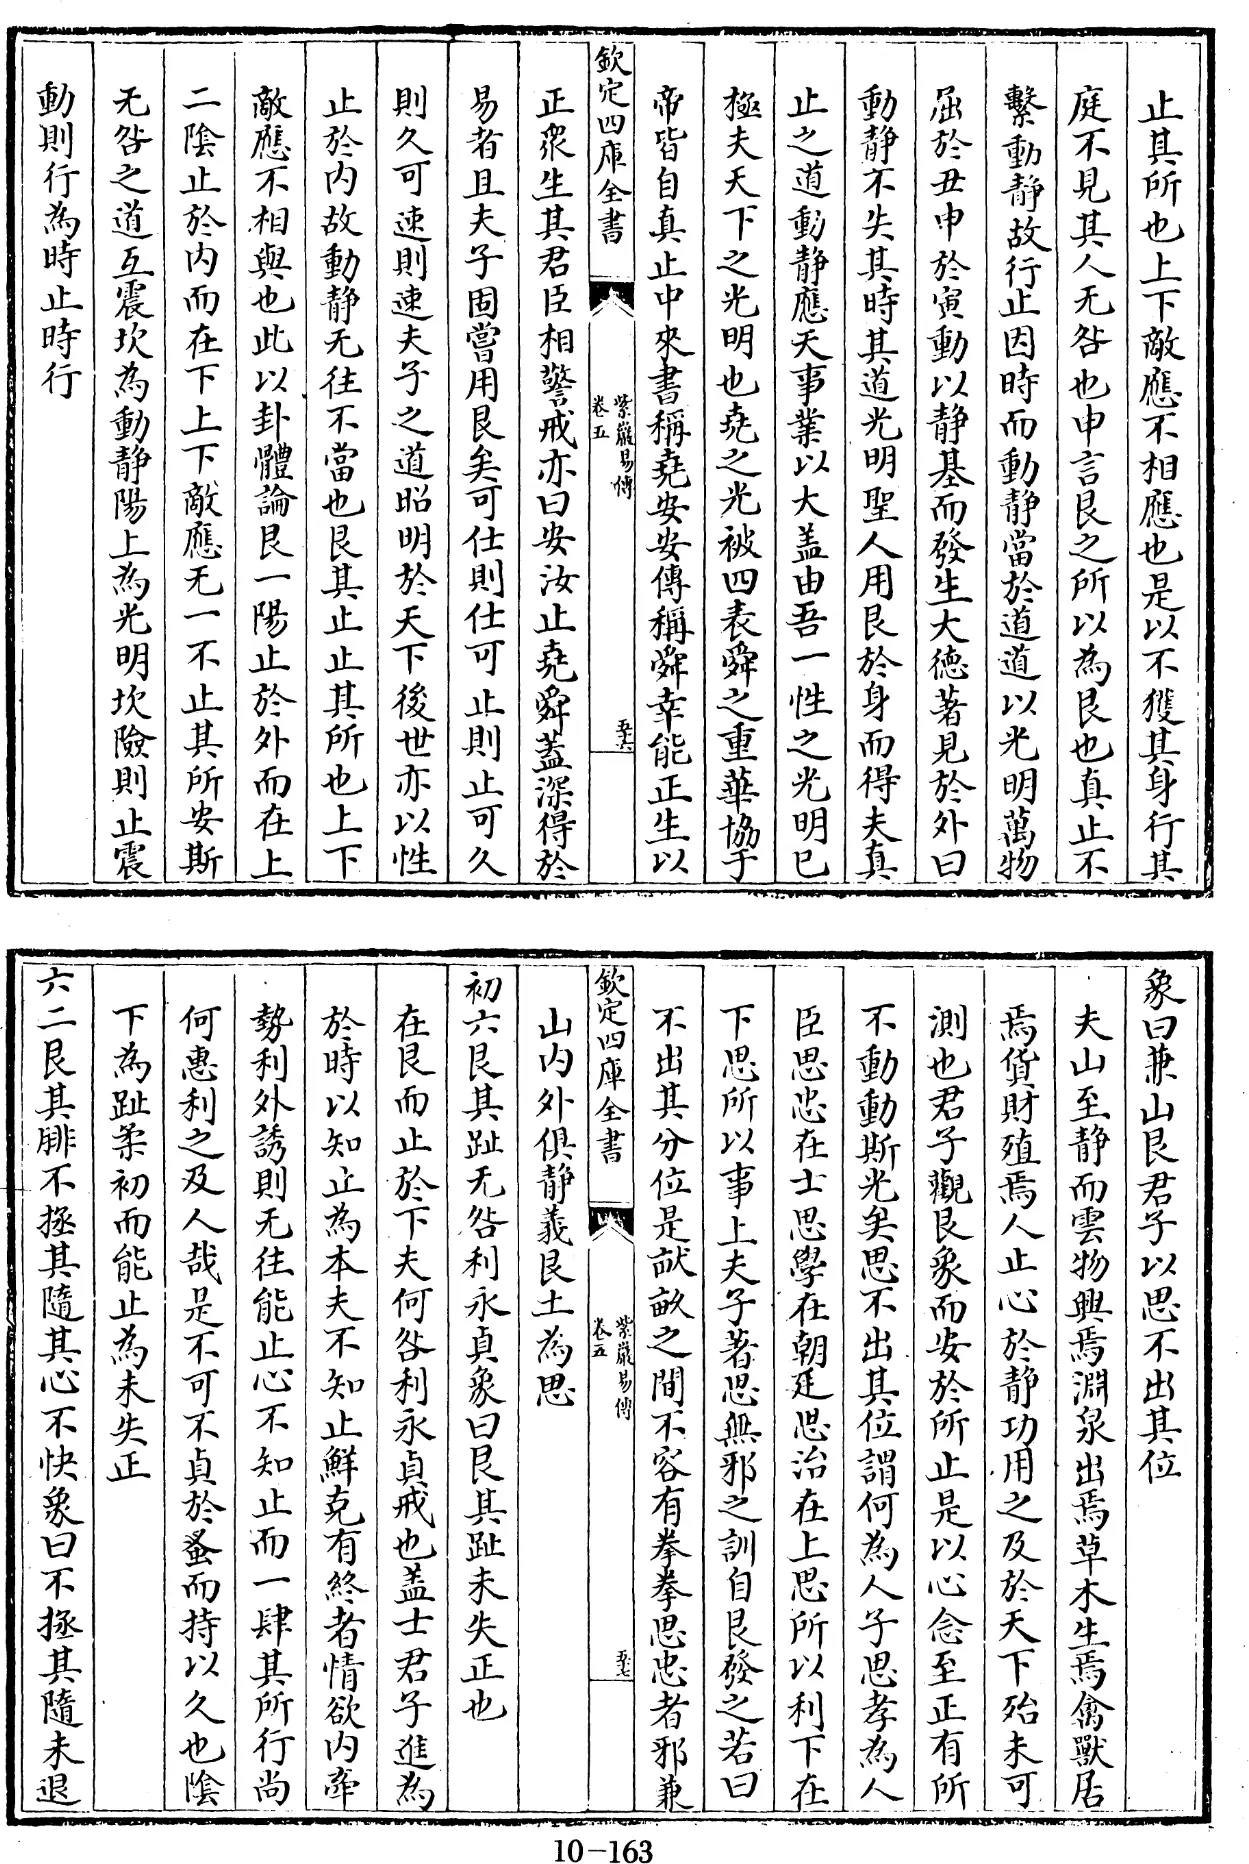 止其所也上下敵應不相應也是以不獲其身行其
庭不見其人无咎也申言艮之所以為艮也真止不
繫動静故行止因時而動静當於道道以光明萬物
屈於丑申於寅動以静基而發生大徳著見於外曰
動静不失其時其道光明聖人用艮於身而得夫真
止之道動静應天事業以大盖由吾一性之光明已
極夫天下之光明也堯之光被四表舜之重華協于
帝皆自真止中來書稱堯安安傳稱舜幸能正生以
欽定四庫全書
紫巖易傳
卷五
五十六
正衆生其君臣相警戒亦曰安汝止堯舜蓋深得於
易者且夫子固嘗用艮矣可仕則仕可止則止可久
則久可速則速夫子之道昭明於天下後世亦以性
止於内故動静无往不當也艮其止止其所也上下
敵應不相與也此以卦體論艮一陽止於外而在上
二陰止於内而在下上下敵應无一不止其所安斯
无咎之道互震坎為動静陽上為光明坎險則止震
動則行為時止時行
象曰兼山艮君子以思不出其位
夫山至静而雲物興焉淵泉出焉草木生焉禽獸居
焉貨財殖焉人止心於静功用之及於天下殆未可
測也君子觀艮象而安於所止是以心念至正有所
不動動斯光矣思不出其位謂何為人子思孝為人
臣思忠在士思學在朝廷思治在上思所以利下在
下思所以事上夫子著思無邪之訓自艮發之若曰
不出其分位是畎畝之間不容有拳拳思忠者邪兼
欽定四庫全書
紫巖易傳
卷五
五十七
山内外俱静義艮土為思
初六艮其趾无咎利永貞象曰艮其趾未失正也
在艮而止於下夫何咎利永貞戒也盖士君子進為
於時以知止為本夫不知止鮮克有終者情欲内牽
勢利外誘則无往能止心不知止而一肆其所行尚
何惠利之及人哉是不可不貞於蚤而持以久也陰
下為趾柔初而能止為未失正
六二艮其腓不拯其隨其心不快象曰不拯其隨未退
10-163